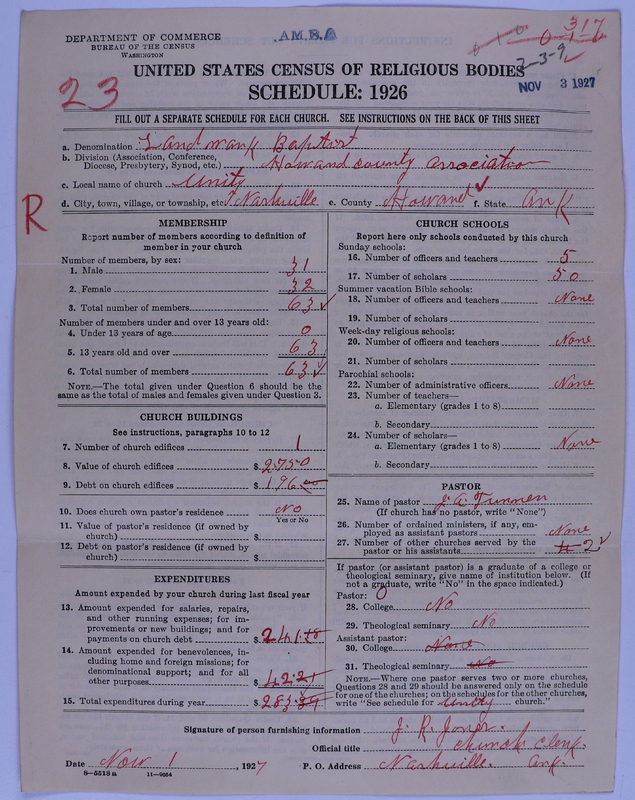 DEPARTMENT OF COMMERCE
BUREAU OF THE CENSUS
WASHINGTON
A.M.B.A
317
2-3-9
NOV 3 1927
23
UNITED STATES CENSUS OF RELIGIOUS BODIES
SCHEDULE: 1926
FILL OUT A SEPARATE SCHEDULE FOR EACH CHURCH. SEE INSTRUCTIONS ON THE BACK OF THIS SHEET
a. Denomination Landmark Baptist
b. Division (Association, Conference,
Diocese, Presbytery, Synod, etc.) Howard county association
c. Local name of church Unity
d. City, town, village, or township, etc. Nashville e. County Howard f. State Ark
R
MEMBERSHIP
Report number of members according to definition of
member in your church
Number of members, by sex:
1. Male 31
2. Female 32
3. Total number of members 63
Number of members under and over 13 years old:
4. Under 13 years of age 0
5. 13 years old and over 63
6. Total number of members 63
NOTE.—The total given under Question 6 should be the
same as the total of males and females given under Question 3.
CHURCH BUILDINGS
See instructions, paragraphs 10 to 12
7. Number of church edifices 1
8. Value of church edifices $ 2750
9. Debt on church edifices $ 196.00
10. Does church own pastor's residence No
Yes or No
11. Value of pastor's residence (if owned by
church) $
12. Debt on pastor's residence (if owned by
church) $
EXPENDITURES
Amount expended by your church during last fiscal year
13. Amount expended for salaries, repairs,
and other running expenses; for im-
provements or new buildings; and for
payments on church debt $ 241.
14. Amount expended for benevolences, in-
cluding home and foreign missions; for
denominational support; and for all
other purposes $ 42.21
15. Total expenditures during year $ 283.
CHURCH SCHOOLS
Report here only schools conducted by this church
Sunday schools:
16. Number of officers and teachers 5
17. Number of scholars 50
Summer vacation Bible schools:
18. Number of officers and teachers None
19. Number of scholars
Week-day religious schools:
20. Number of officers and teachers None
21. Number of scholars
Parochial schools:
22. Number of administrative officers None
23. Number of teachers—
a. Elementary (grades 1 to 8)
b. Secondary
24. Number of scholars—
a. Elementary (grades 1 to 8) None
b. Secondary
PASTOR
25. Name of pastor J. A. Turmen
(If church has no pastor, write "None")
26. Number of ordained ministers, if any, em-
ployed as assistant pastors None
27. Number of other churches served by the
pastor or his assistants 2
If pastor (or assistant pastor) is a graduate of a college or
theological seminary, give name of institution below. (If
not a graduate, write "No" in the space indicated.)
Pastor: 0
28. College No
29. Theological seminary No
Assistant pastor:
30. College None
31. Theological seminary No
NOTE.—Where one pastor serves two or more churches,
Questions 28 and 29 should be answered only on the schedule
for one of the churches; on the schedules for the other churches,
write "See schedule for Unity church."
Signature of person furnishing information J. R. Jones.
Official title church clerk.
Date Nov 1, 1927 P. O. Address Nashville. Ark.
8-5518a 11-9664